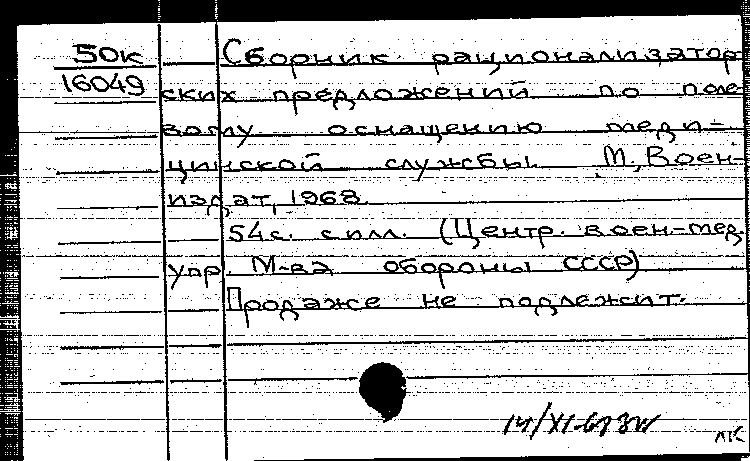 50к Сборник рационализатор
16049 ских предложений по поле
вому оснащению меди-
цинской службы. М., Воен-
издат, 1968.
54с. с илл. (Центр. воен-мед.
упр. М-ва обороны СССР)
Продаже не подлежит.
14/XI-
лк